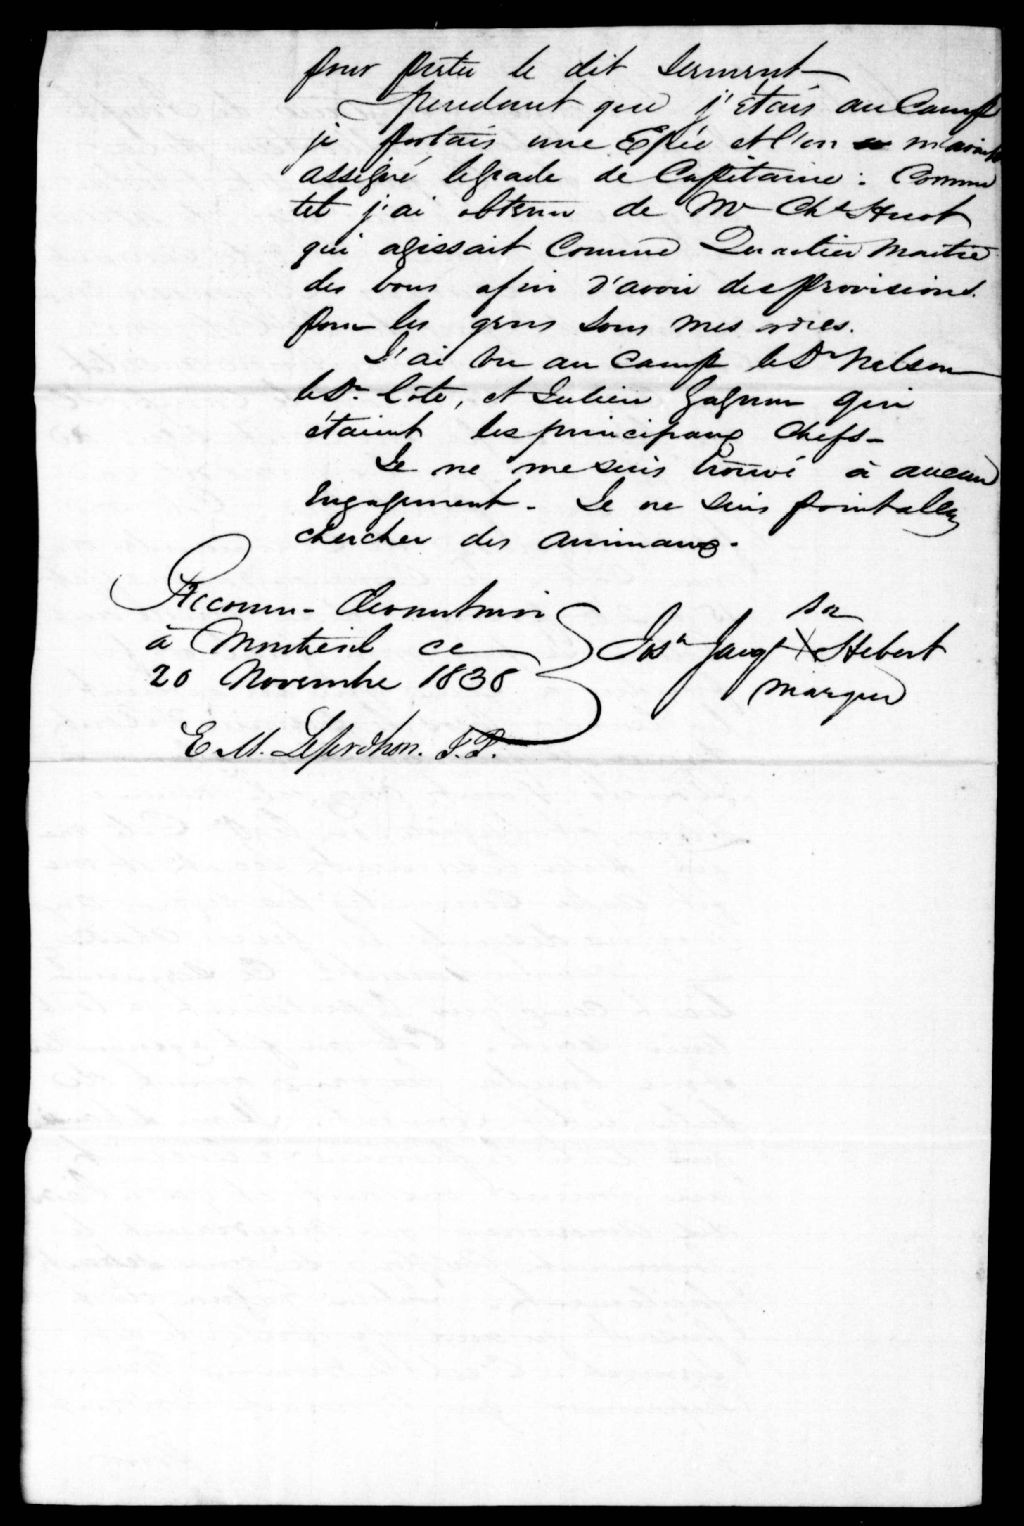 pour preter le dit Serment
Pendant que j'étais au Camp
je portais une Epée et l'on m'avait
assigné le grade de Capitaine. Comme
tel j'ai obtenu de Mr Chs Huot
qui agissait Comme Quartier Maitre
des bons afin d'avoir des provisions
pour les gens sous mes ordres.
J'ai vu au Camp le Dr Nelson
le Dr Cote, et Julien Gagnon qui
étaient les principaux Chefs -
Je ne me suis trouvé à aucun
Engagement - Je ne suis point allé
chercher des animaux.
Reconnu devant moi
à Montreal ce
20 Novembre 1838
sa
Josh Jacqs X Hebert
marque
E. M. Leprohon. J.P.